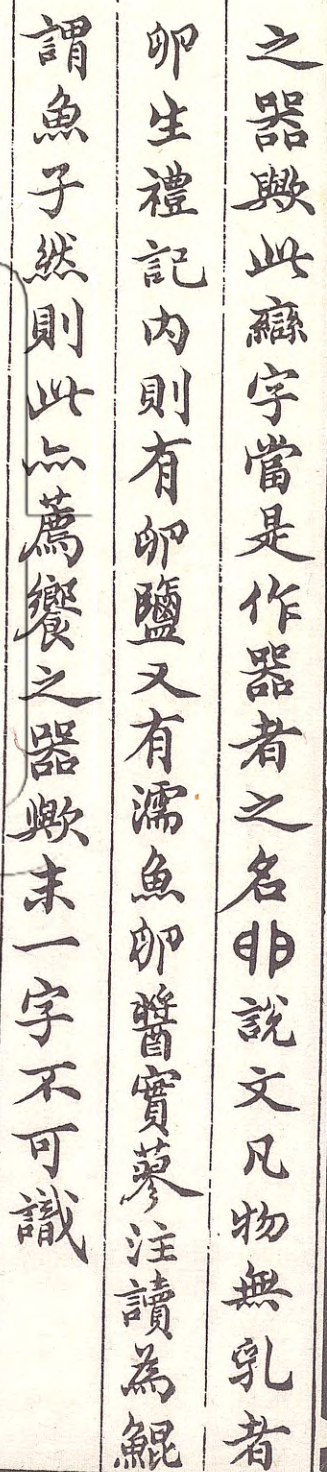 之器歟此䜌字當是作器者之名卵說文凡物無乳者
卵生禮記內則有卵鹽又有濡魚卵醬實蓼注讀為鯤
謂魚子然則此亦薦饗之器歟末一字不可識